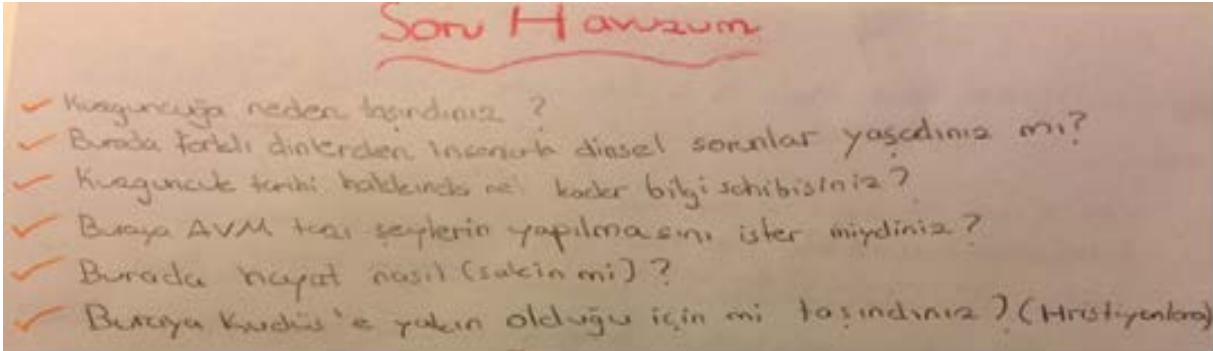 Soru Havuzum
Kuzguncuğa neden taşındınız ?
Burada farklı dinlerden insanlarla dinsel sorunlar yaşadınız mı?
Kuzguncuk tarihi hakkında ne kadar bilgi sahibisiniz?
Buraya AVM tarzı şeylerin yapılmasını ister miydiniz?
Burada hayat nasıl (sakin mi) ?
Buraya Kudüs'e yakın olduğu için mi taşındınız ? (Hristiyanlara)